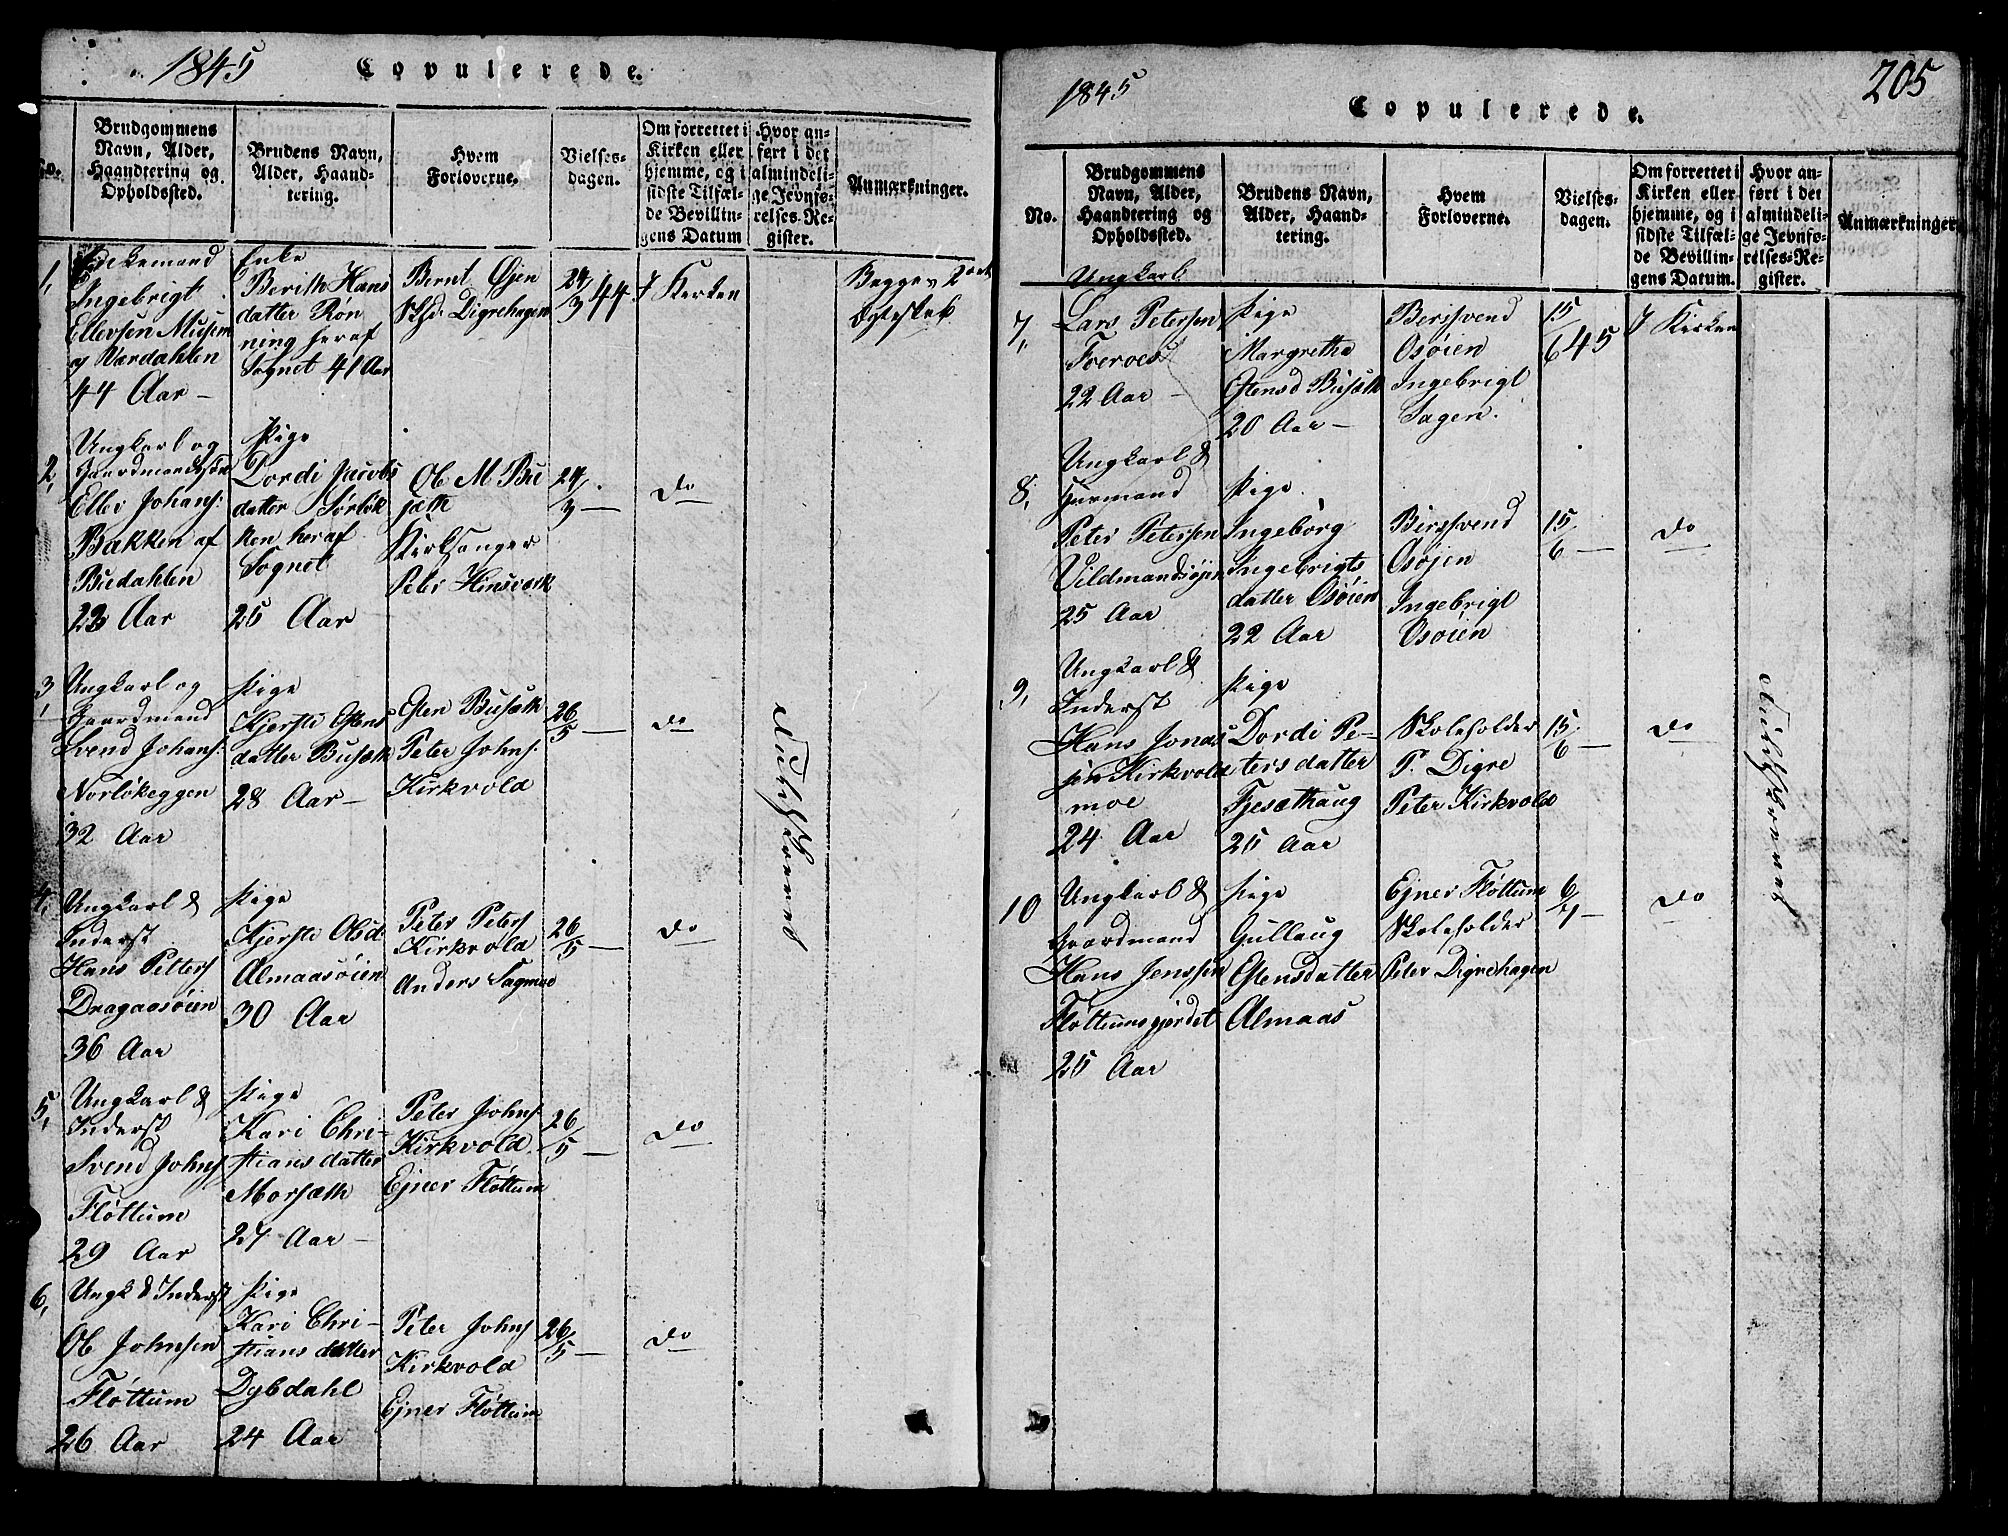 1845
Copulerede.
No.
Brudgommens
Navn, Alder,
Haandtering og
Opholdssted.
Brudens Navn,
Alder, Haand-
tering.
Hvem
Forloverne.
Vielses-
dagen.
Om forrettet i
Kirken eller
hjemme, og i
sidste Tilfæl-
de Bevillin-
gens Datum
Hvor an-
ført i det
almindeli-
ge Jevnfø-
relses-Re-
gister.
Anmærkninger.
1,
Enkemand
Ingebrigt
Ellevsen Musem
og Værdahlen
44 Aar –
Enke
Berith Hans
datter Røn
ning heraf
Sognet 41 Aar
Bernt Øjen
Digrehagen
24/3 44
I Kirken
Begges 2det
Egteskab
2,
Ungkarl og
Gaardmandssøn
Ellev Johans:
Bakken af
Budahlen
23 Aar
Pige
Dordi Jacobs
datter Sørløk
ken heraf
Sognet
25 Aar
Ol M Bu
sæth
Kirksanger
Peter Hinsværk
24/3 –
do
3,
Ungkarl og
Gaardmand
Svend Johans:
Norløkeggen
32 Aar
Pige
Kjersti Estens
datter Busæth
28 Aar –
Esten Busæth
Peter Johns:
Kirkvold
26/5 –
do
4,
Ungkarl &
Inderst
Hans Petters
Dragaasøien
36 Aar
Pige
Kjersti Olsd
Almaasøien
30 Aar
Peter Peters
Kirkvold
Anders Sagmoe
26/5 –
do
5,
Ungkarl &
Inderst
Svend Johns
Fløttum
29 Aar
Pige
Kari Chri-
stiansdatter
Morsæth
27 Aar –
Peter Johns
Kirkvold
Ejner Fløttum
26/5 –
do
6,
Ungk & Inderst
Ol Johnsen
Fløttum
26 Aar
Pige
Kari Chri-
stiansdatter
Dybdahl
24 Aar
Peter Johns
Kirkvold
Ejner Fløttum
26/5 –
do
1845
Copulerede.
205
No.
Brudgommens
Navn, Alder,
Haandtering og
Opholdssted.
Brudens Navn,
Alder, Haand-
tering.
Hvem
Forloverne.
Vielses-
dagen.
Om forrettet i
Kirken eller
hjemme, og i
sidste Tilfæl-
de Bevillin-
gens Datum.
Hvor an-
ført i det
almindeli-
ge Jevnfø-
relses-Re-
gister.
Anmærkninger.
7,
Ungkarl
Lars Petersen
Tverroes
22 Aar –
Pige
Margretha
Estensd Busæth
20 Aar –
Bersvend
Osøien
Ingebrigt
Sagen.
15/6 45
I Kirken
8,
Ungkarl &
Huusmand
Peter Petersen
Vildmandsøjen
25 Aar
Pige
Ingeborg
Ingebrigts
datter Osøien
22 Aar
Bersvend
Osøjen
Ingebrigt
Osøien
15/6 –
do
9,
Ungkarl &
Inderst
Hans Jonas
sen Kirkvold
moe
24 Aar
Pige
Dordi Pe-
tersdatter
Fjesæthaug
25 Aar
Skoleholder
P. Digre
Peter Kirkvold
15/6 –
do
10
Ungkarl &
Gaardmand
Hans Jenssen
Fløttumsgjerdet
25 Aar
Pige
Gullaug
Estensdatter
Almaas
Ejner Fløttum
Skoleholder
Peter Digrehagen
6/7 –
do